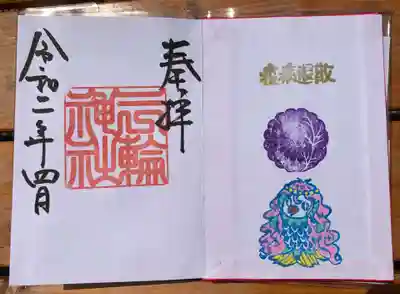 奉拝
三輪神社
令和二年四月
疫病退散